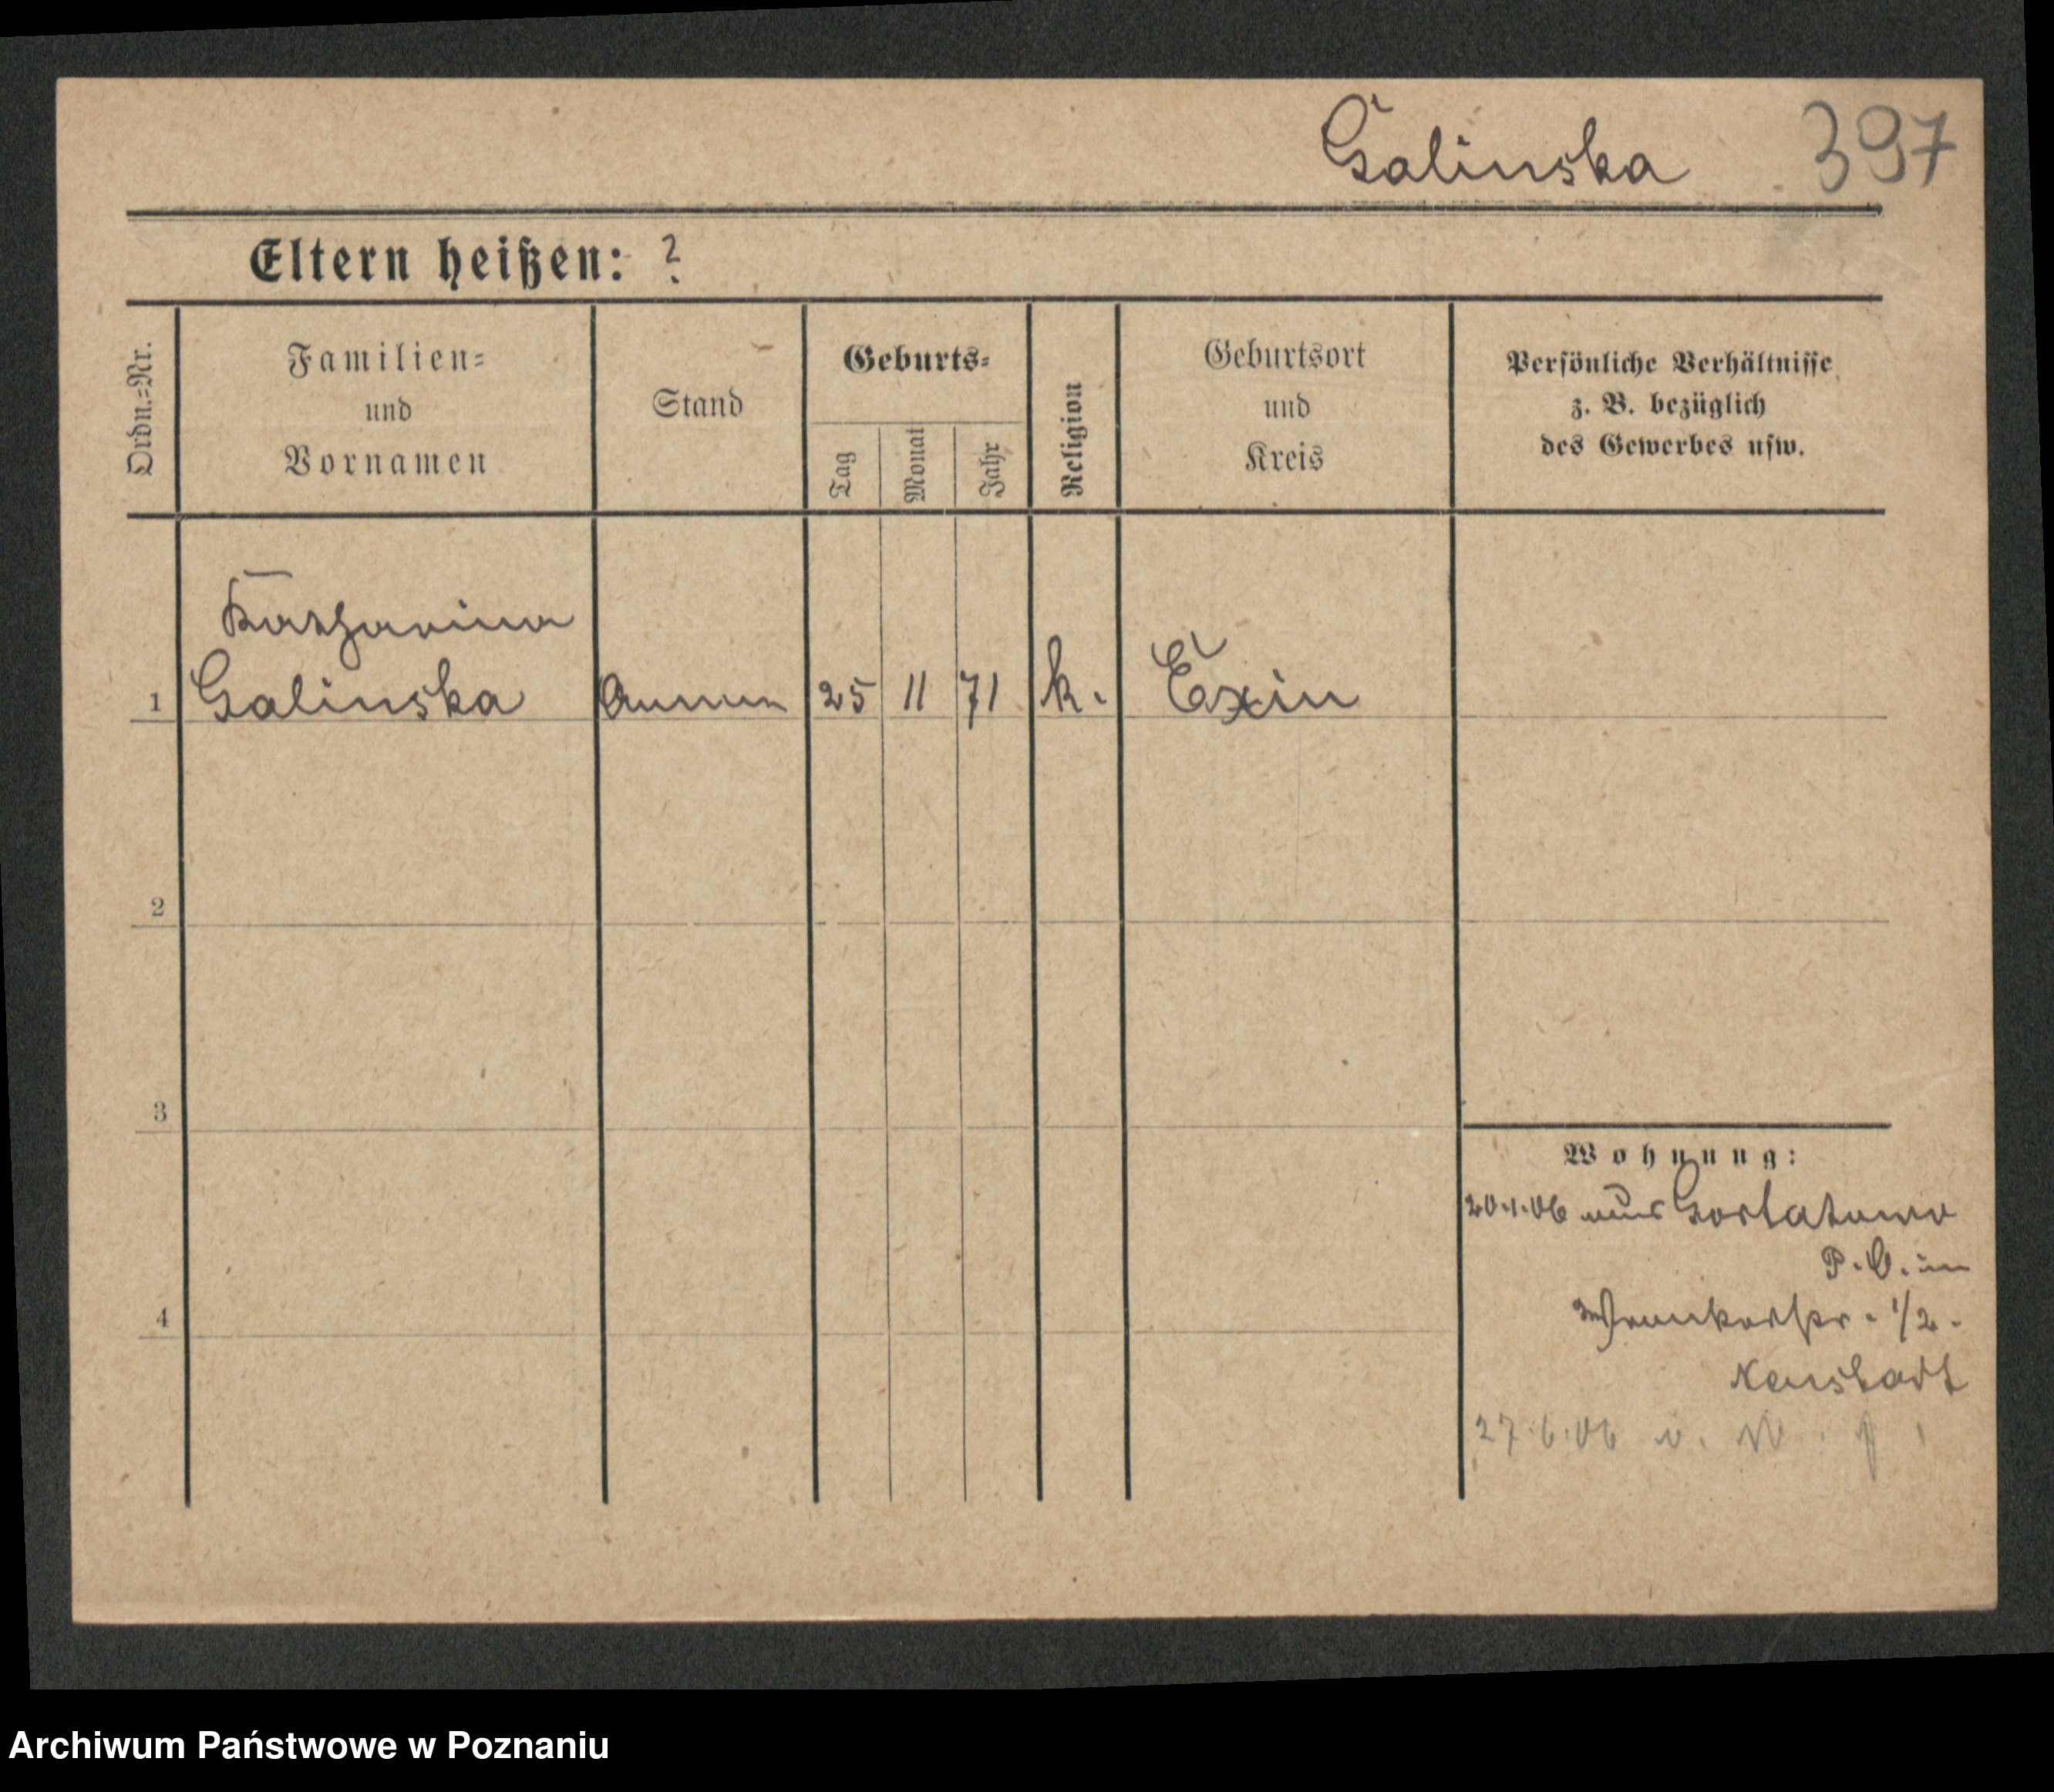 Galinska 397
Eltern heißen: ?
Ordn.=Nr.
Familien=
und
Vornamen
Stand
Geburts=
Tag
Monat
Jahr
Religion
Geburtsort
und
Kreis
Persönliche Verhältnisse
z. B. bezüglich
des Gewerbes usw.
Katharina
1 Galinska Ammen 25 11 71 k. Exin
2
3
4
Wohnung:
20.1.06 aus Gortatowo
P. O. in
1/2.
Neustadt
27.6.06 v.
Archiwum Państwowe w Poznaniu